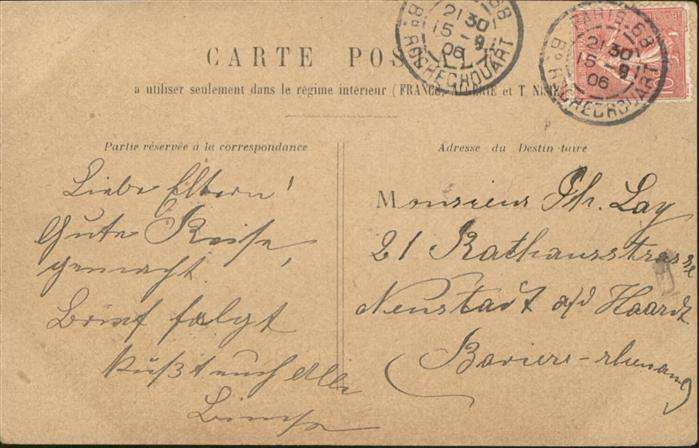 CARTE POSTALE
a utiliser seulement dans le régime intérieur (FRANCE, ALGÉRIE et TUNISIE)
Partie réservée à la correspondance
Adresse du Destinataire
PARIS-68
21 30
15 - 9
06
Bd ROCHECHOUART
PARIS-68
21 30
15 - 9
06
Bd ROCHECHOUART
Liebe Eltern!
Gute Reise
gemacht.
Brief folgt
Küßt euch Alle
Monsieur Ph. Lay
21 Rathausstrasse
Neustadt a/d Haardt
Baviere-rhenane